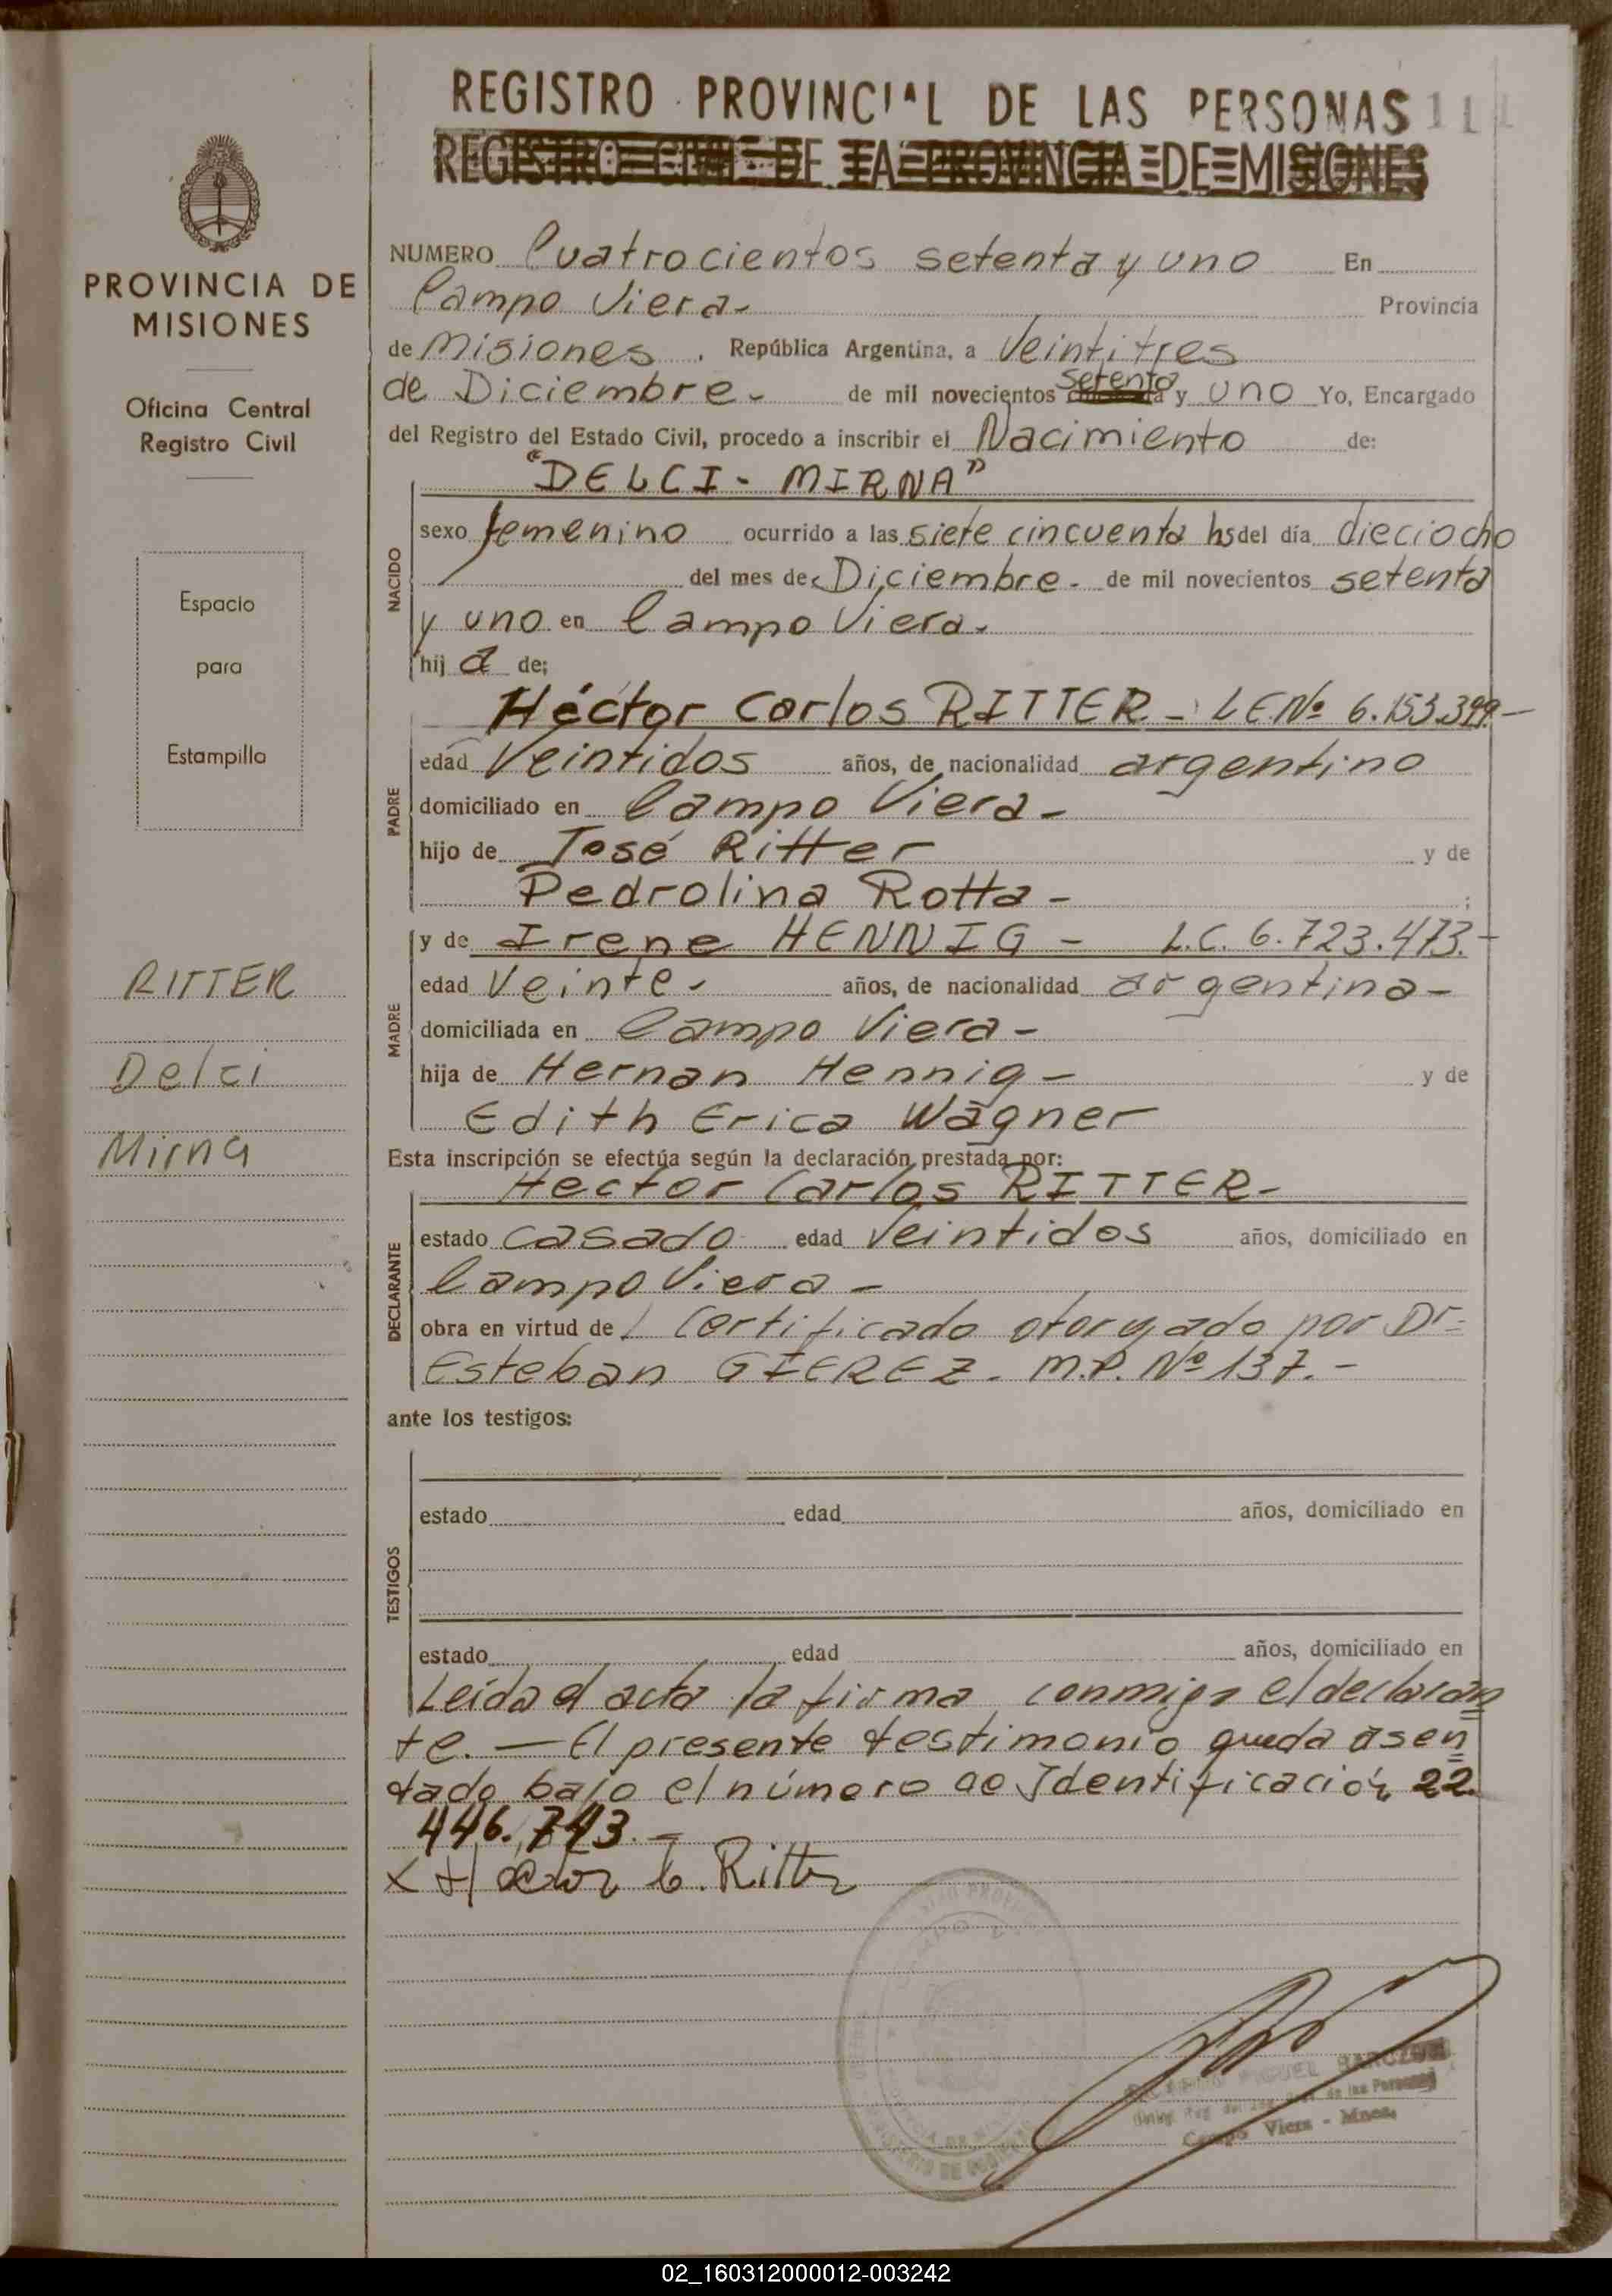 REGISTRO PROVINCIAL DE LAS PERSONAS 111
REGISTRO CIVIL DE LA PROVINCIA DE MISIONES
PROVINCIA DE
MISIONES
Oficina Central
Registro Civil
Espacio
para
Estampilla
RITTER
Delci
Mirna
NUMERO Cuatrocientos setenta y uno En
Campo Viera-
Provincia
de Misiones, República Argentina, a Veintitres
de Diciembre.- de mil novecientos setenta y uno Yo, Encargado
del Registro del Estado Civil, procedo a inscribir el Nacimiento de:
"DELCI - MIRNA"
NACIDO
sexo femenino ocurrido a las siete cincuenta hs del día dieciocho
del mes de Diciembre.- de mil novecientos setenta
y uno en Campo Viera.
hij a de;
PADRE
Héctor Carlos RITTER - LE Nº 6.153.399.-
edad Veintidos años, de nacionalidad argentino
domiciliado en Campo Viera-
hijo de José Ritter y de
Pedrolina Rotta - ;
MADRE
y de Irene HENNIG - L.C. 6.723.473.-
edad Veinte.- años, de nacionalidad argentina-
domiciliada en Campo Viera-
hija de Hernan Hennig- y de
Edith Erica Wagner
Esta inscripción se efectúa según la declaración prestada por:
DECLARANTE
Hector Carlos RITTER-
estado casado edad Veintidos años, domiciliado en
Campo Viera-
obra en virtud de Certificado otorgado por Dr
Esteban GIEREZ. M.P. Nº 137.-
ante los testigos:
TESTIGOS
estado edad años, domiciliado en
estado edad años, domiciliado en
Leida el acta la firma conmigo el declaran
te. — El presente testimonio queda asen
tado bajo el número de Identificación 22.
446.743.-
x Hector C. Ritter
MIGUEL
de las Personas
Campo Viera - Mnes.
02_160312000012-003242